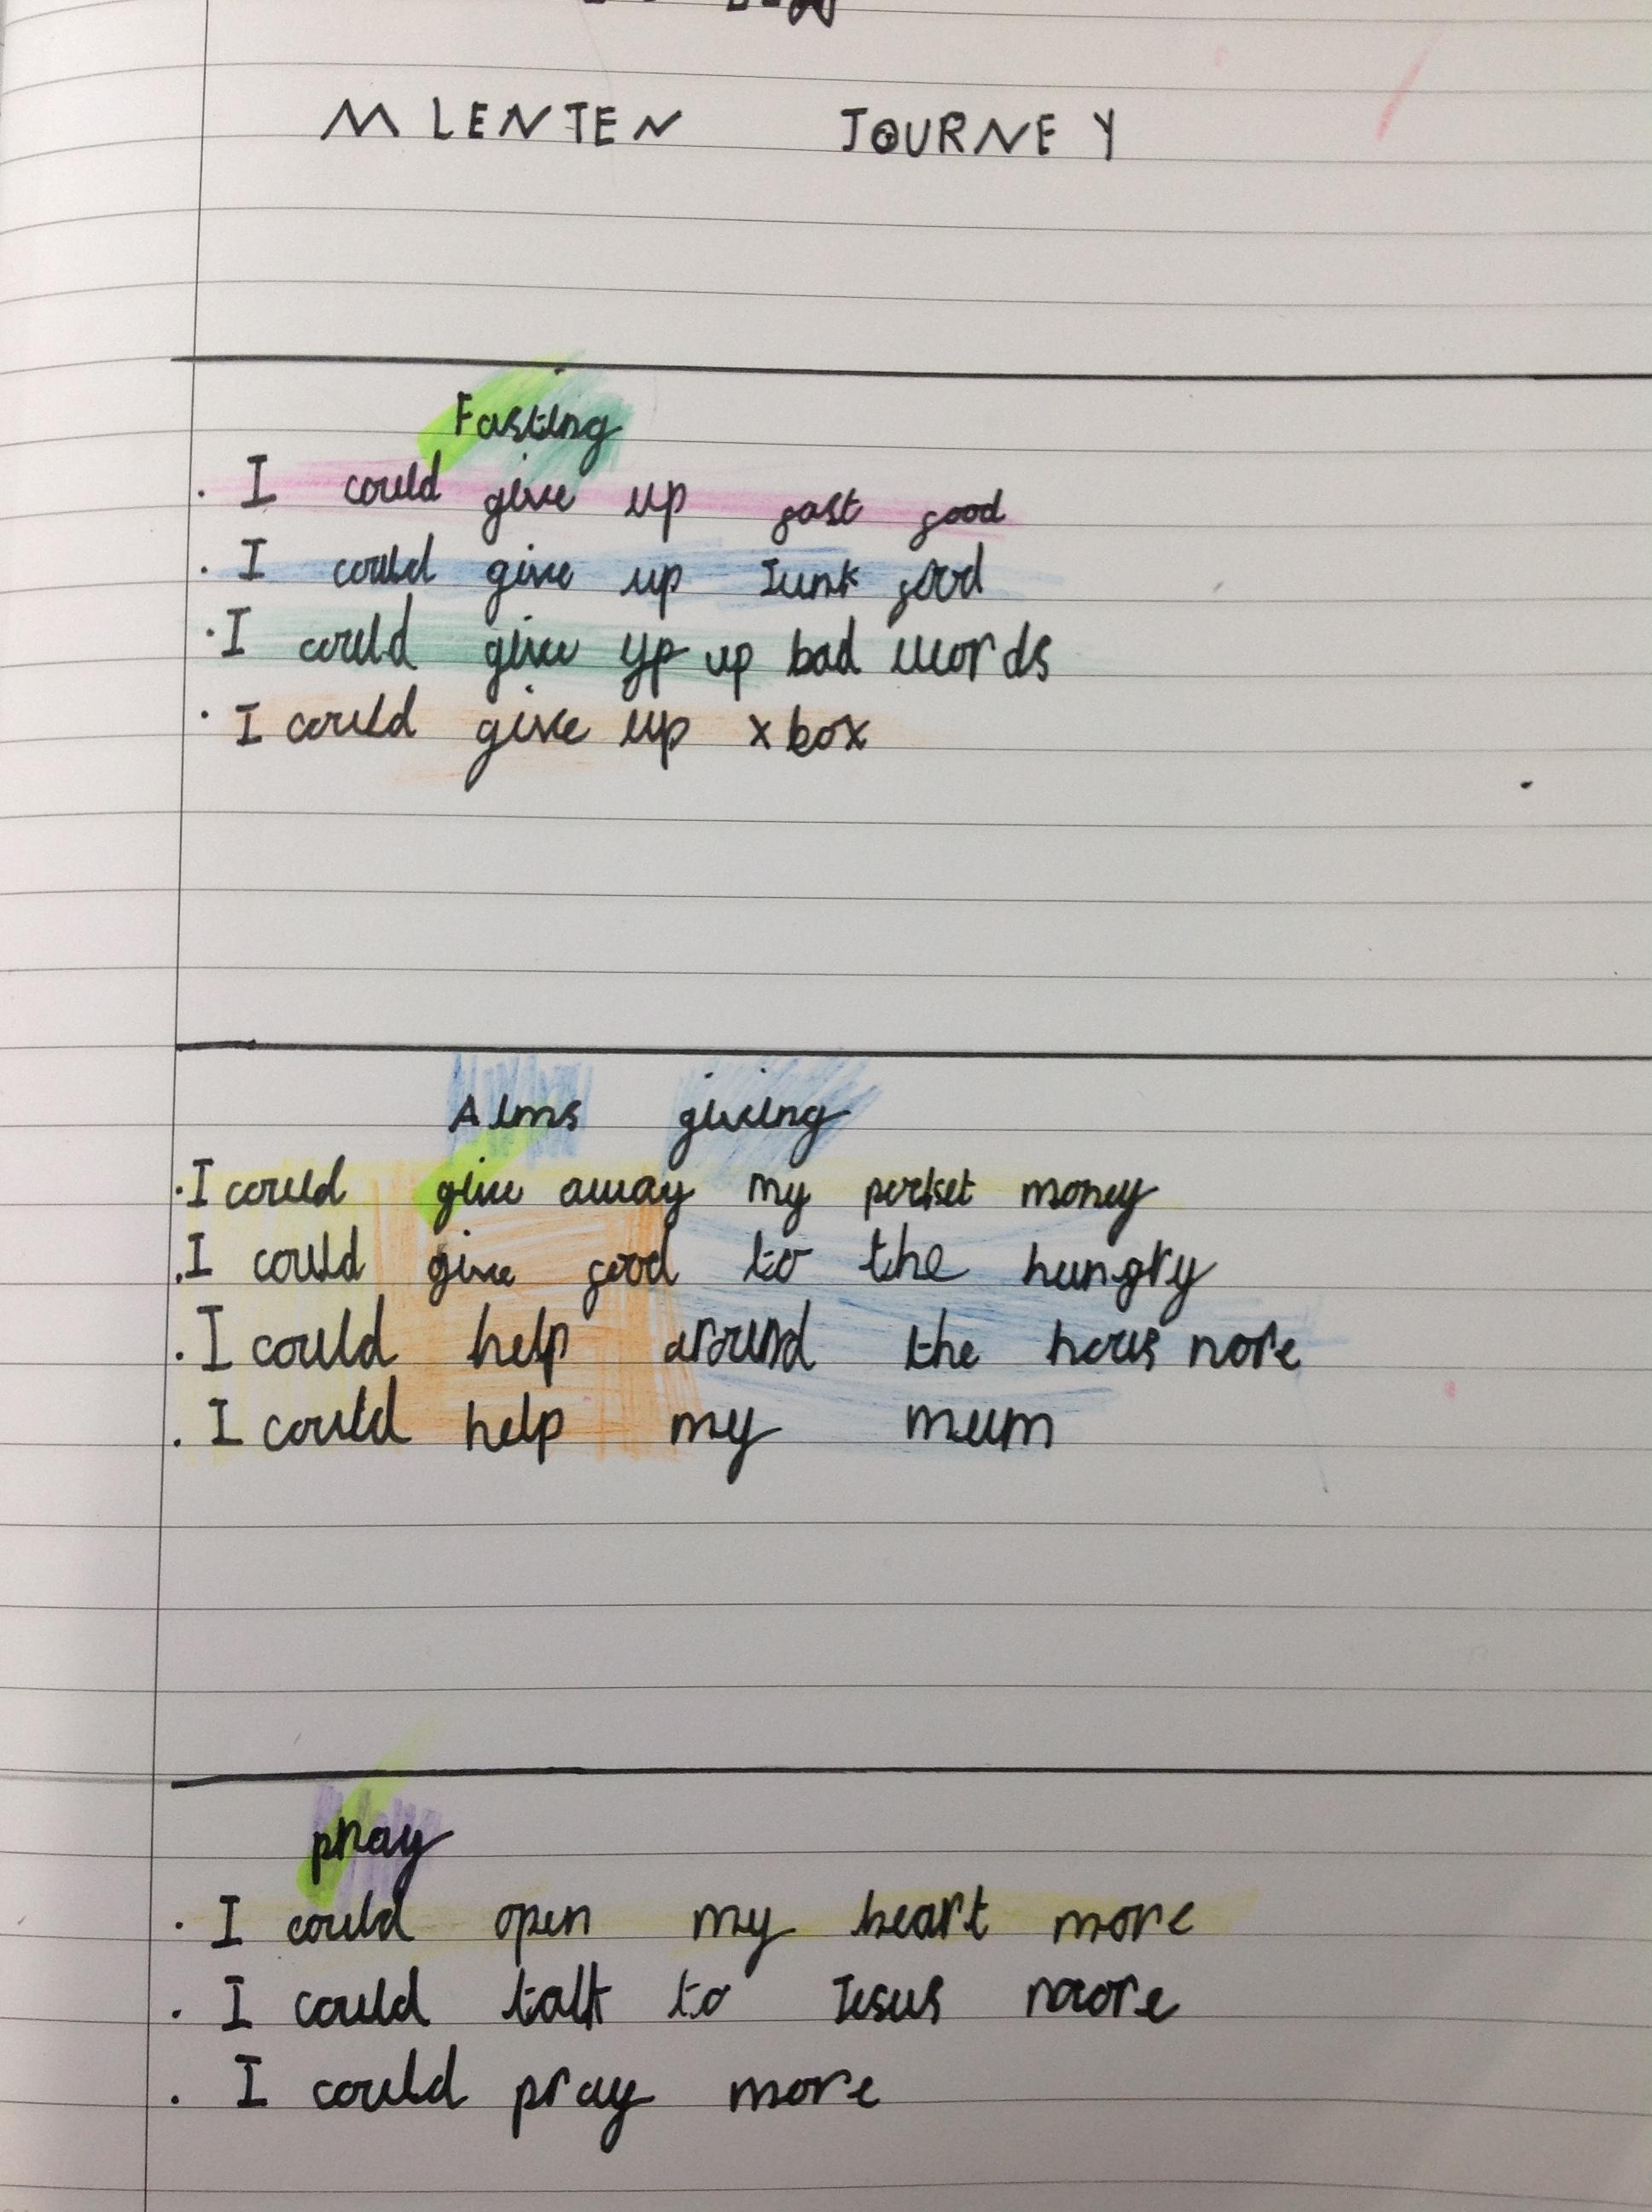 M LENTEN JOURNEY
Fasting
. I could give up fast food
. I could give up Junk food
. I could give yp up bad words
. I could give up xbox
Alms giving
. I could give away my pocket money
. I could give food to the hungry
. I could help around the hous nore
. I could help my mum
pray
. I could open my heart more
. I could talk to Jesus more
. I could pray more